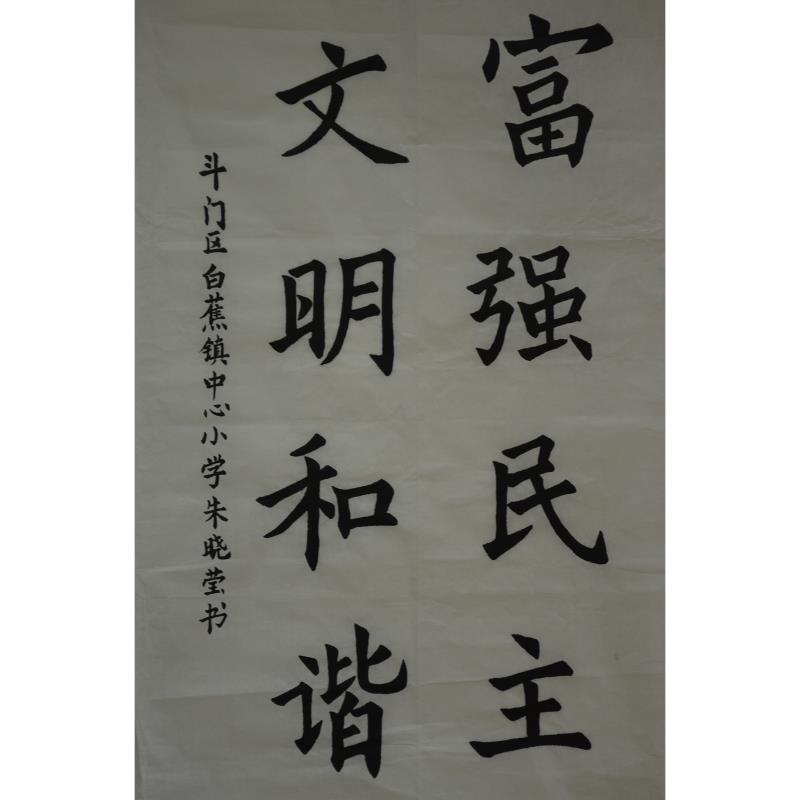 富强民主
文明和谐
斗门区白蕉镇中心小学朱晓莹书